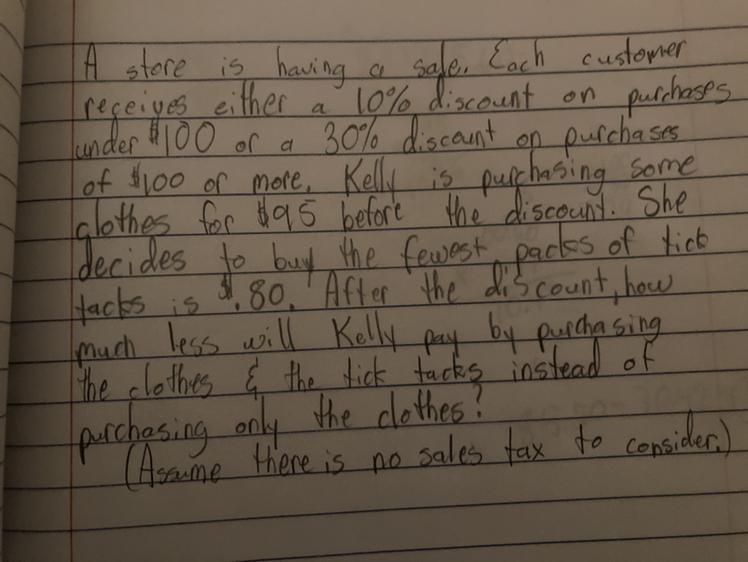 A store is having a sale. Each customer
receives either a 10% discount on purchases
under $100 or a 30% discount on purchases
of $100 or more. Kelly is purchasing some
clothes for $95 before the discount. She
decides to buy the fewest packs of tick
tacks is $.80. After the discount, how
much less will Kelly pay by purchasing
the clothes & the tick tacks instead of
purchasing only the clothes?
(Assume there is no sales tax to consider.)